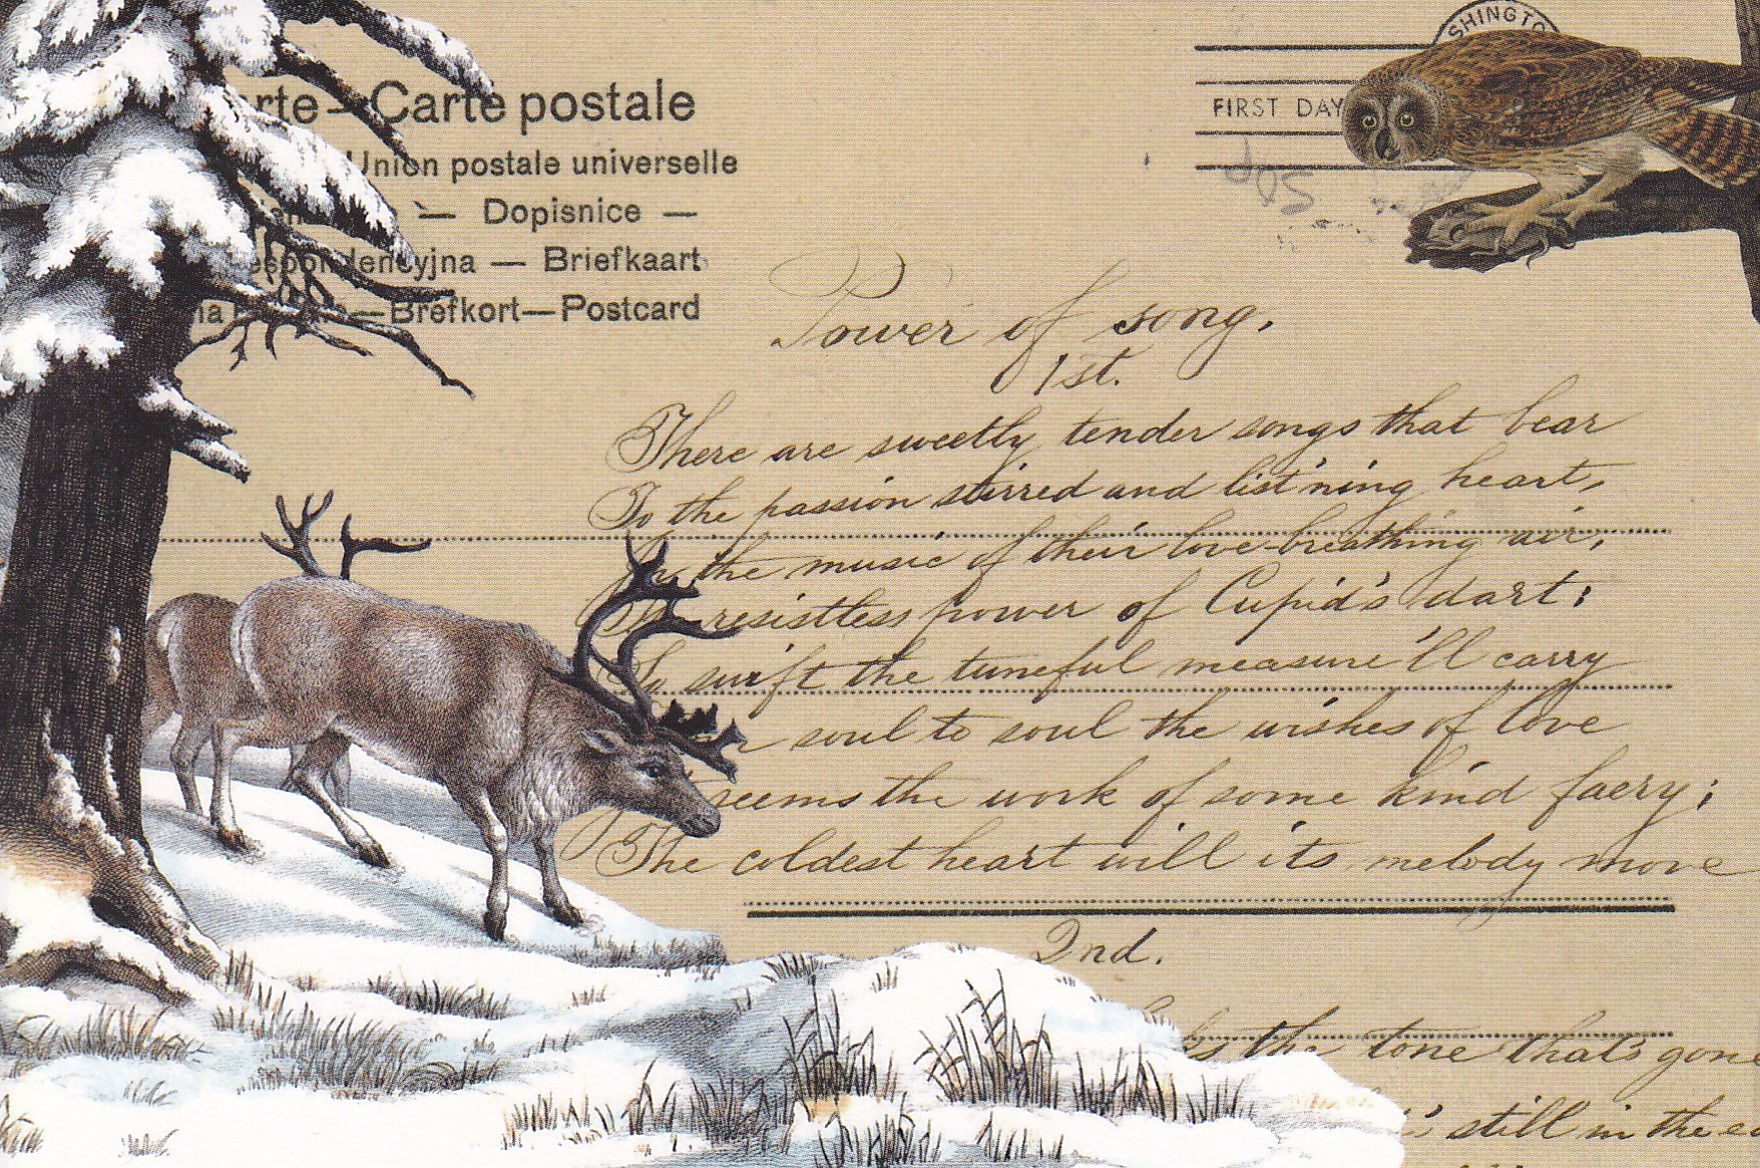 rte – Carte postale
Union postale universelle
— Dopisnice —
espondencyjna — Briefkaart
na — Brefkort — Postcard
SHINGTO
FIRST DAY
Power of song.
1st.
There are sweetly tender songs that bear
To the passion stirred and list'ning heart,
the music of their love-breathing air,
resistless power of Cupid's dart:
So swift the tuneful measure'll carry
soul to soul the wishes of love
seems the work of some kind faery;
The coldest heart will its melody move
2nd.
the tone that's gone
still in the